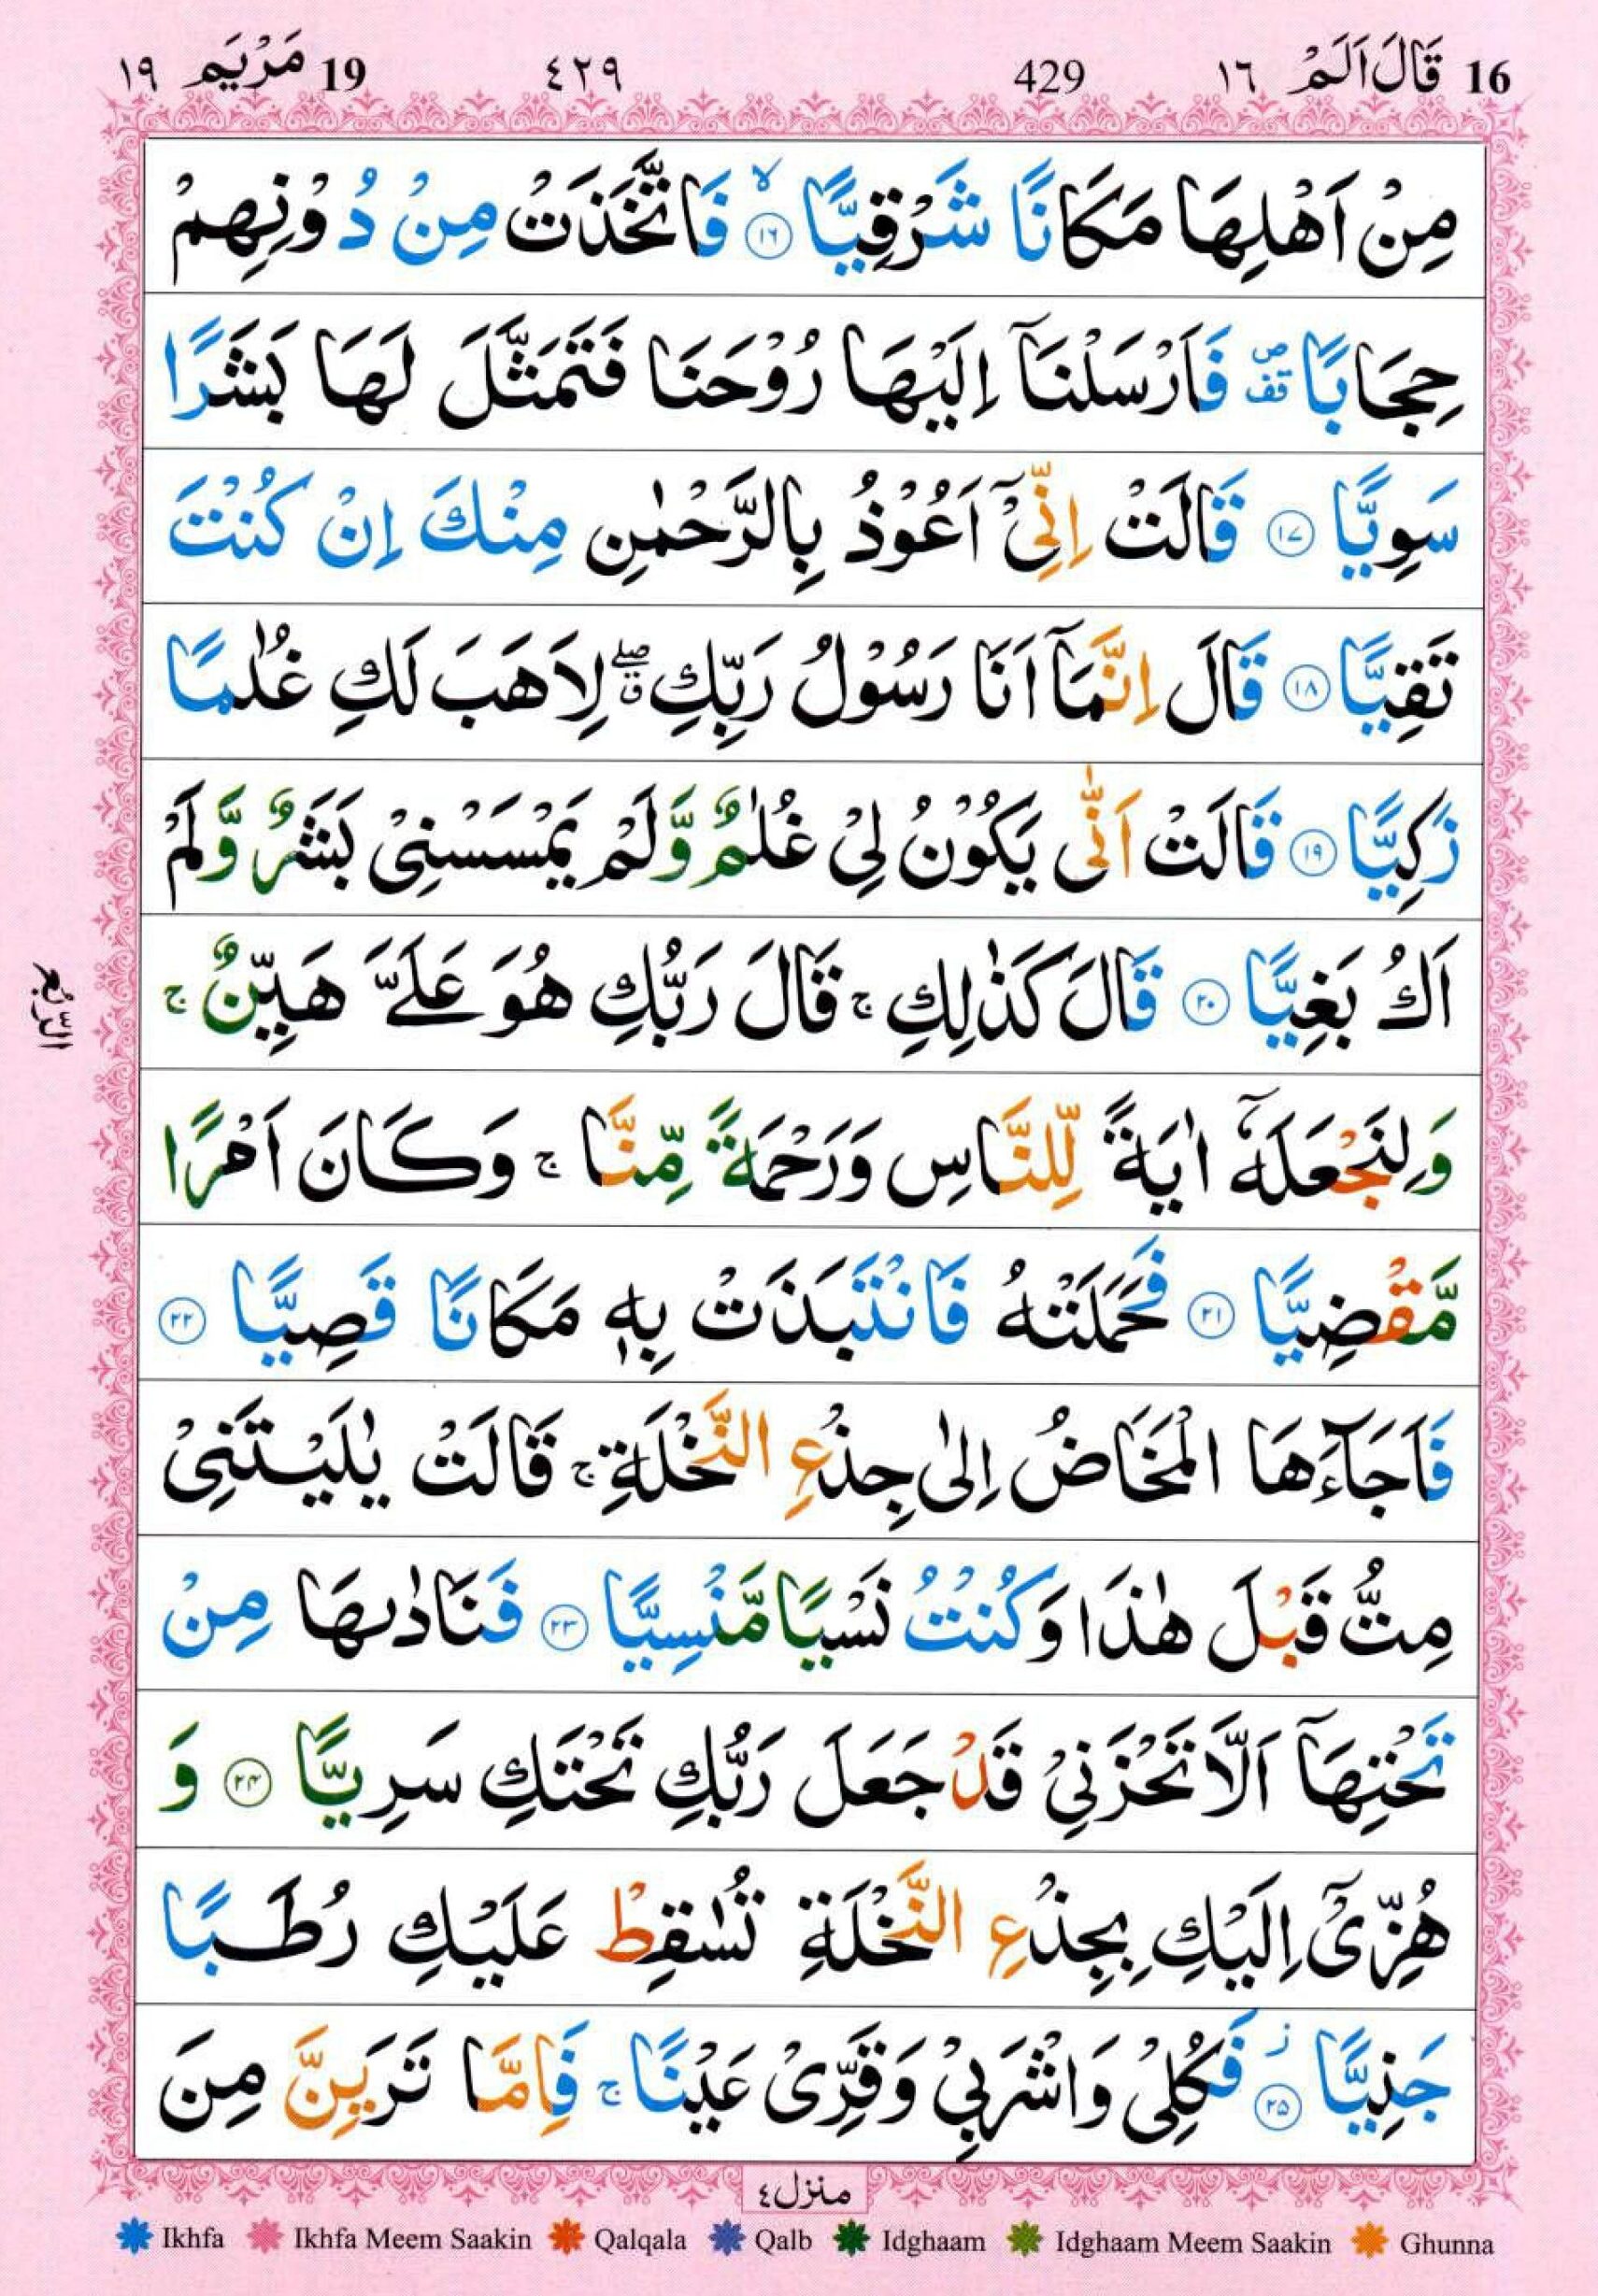 16 قَالَ اَلَمْ ١٦ 429 ٤٢٩ 19 مَرْيَم ١٩
مِنْ اَهْلِهَا مَكَانًا شَرْقِيًّا ۙ﴿۱۶﴾ فَاتَّخَذَتْ مِنْ دُوْنِهِمْ
حِجَابًا ۪۟ فَاَرْسَلْنَاۤ اِلَيْهَا رُوْحَنَا فَتَمَثَّلَ لَهَا بَشَرًا
سَوِيًّا ﴿۱۷﴾ قَالَتْ اِنِّىْۤ اَعُوْذُ بِالرَّحْمٰنِ مِنْكَ اِنْ كُنْتَ
تَقِيًّا ﴿۱۸﴾ قَالَ اِنَّمَاۤ اَنَا رَسُوْلُ رَبِّكِ ۖۗ لِاَهَبَ لَكِ غُلٰمًا
زَكِيًّا ﴿۱۹﴾ قَالَتْ اَنّٰى يَكُوْنُ لِىْ غُلٰمٌ وَّلَمْ يَمْسَسْنِىْ بَشَرٌ وَّلَمْ
اَكُ بَغِيًّا ﴿۲۰﴾ قَالَ كَذٰلِكِ ۚ قَالَ رَبُّكِ هُوَ عَلَىَّ هَيِّنٌ ۚ
وَلِنَجْعَلَهٗۤ اٰيَةً لِّلنَّاسِ وَرَحْمَةً مِّنَّا ۚ وَكَانَ اَمْرًا
مَّقْضِيًّا ﴿۲۱﴾ فَحَمَلَتْهُ فَانْتَبَذَتْ بِهٖ مَكَانًا قَصِيًّا ﴿۲۲﴾
فَاَجَآءَهَا الْمَخَاضُ اِلٰى جِذْعِ النَّخْلَةِ ۚ قَالَتْ يٰلَيْتَنِىْ
مِتُّ قَبْلَ هٰذَا وَكُنْتُ نَسْيًا مَّنْسِيًّا ﴿۲۳﴾ فَنَادٰىهَا مِنْ
تَحْتِهَاۤ اَلَّا تَحْزَنِىْ قَدْ جَعَلَ رَبُّكِ تَحْتَكِ سَرِيًّا ﴿۲۴﴾ وَ
هُزِّىْۤ اِلَيْكِ بِجِذْعِ النَّخْلَةِ تُسٰقِطْ عَلَيْكِ رُطَبًا
جَنِيًّا ؗ﴿۲۵﴾ فَكُلِىْ وَاشْرَبِىْ وَقَرِّىْ عَيْنًا ۚ فَاِمَّا تَرَيِنَّ مِنَ
الربع
منزل٤
Ikhfa Ikhfa Meem Saakin Qalqala Qalb Idghaam Idghaam Meem Saakin Ghunna